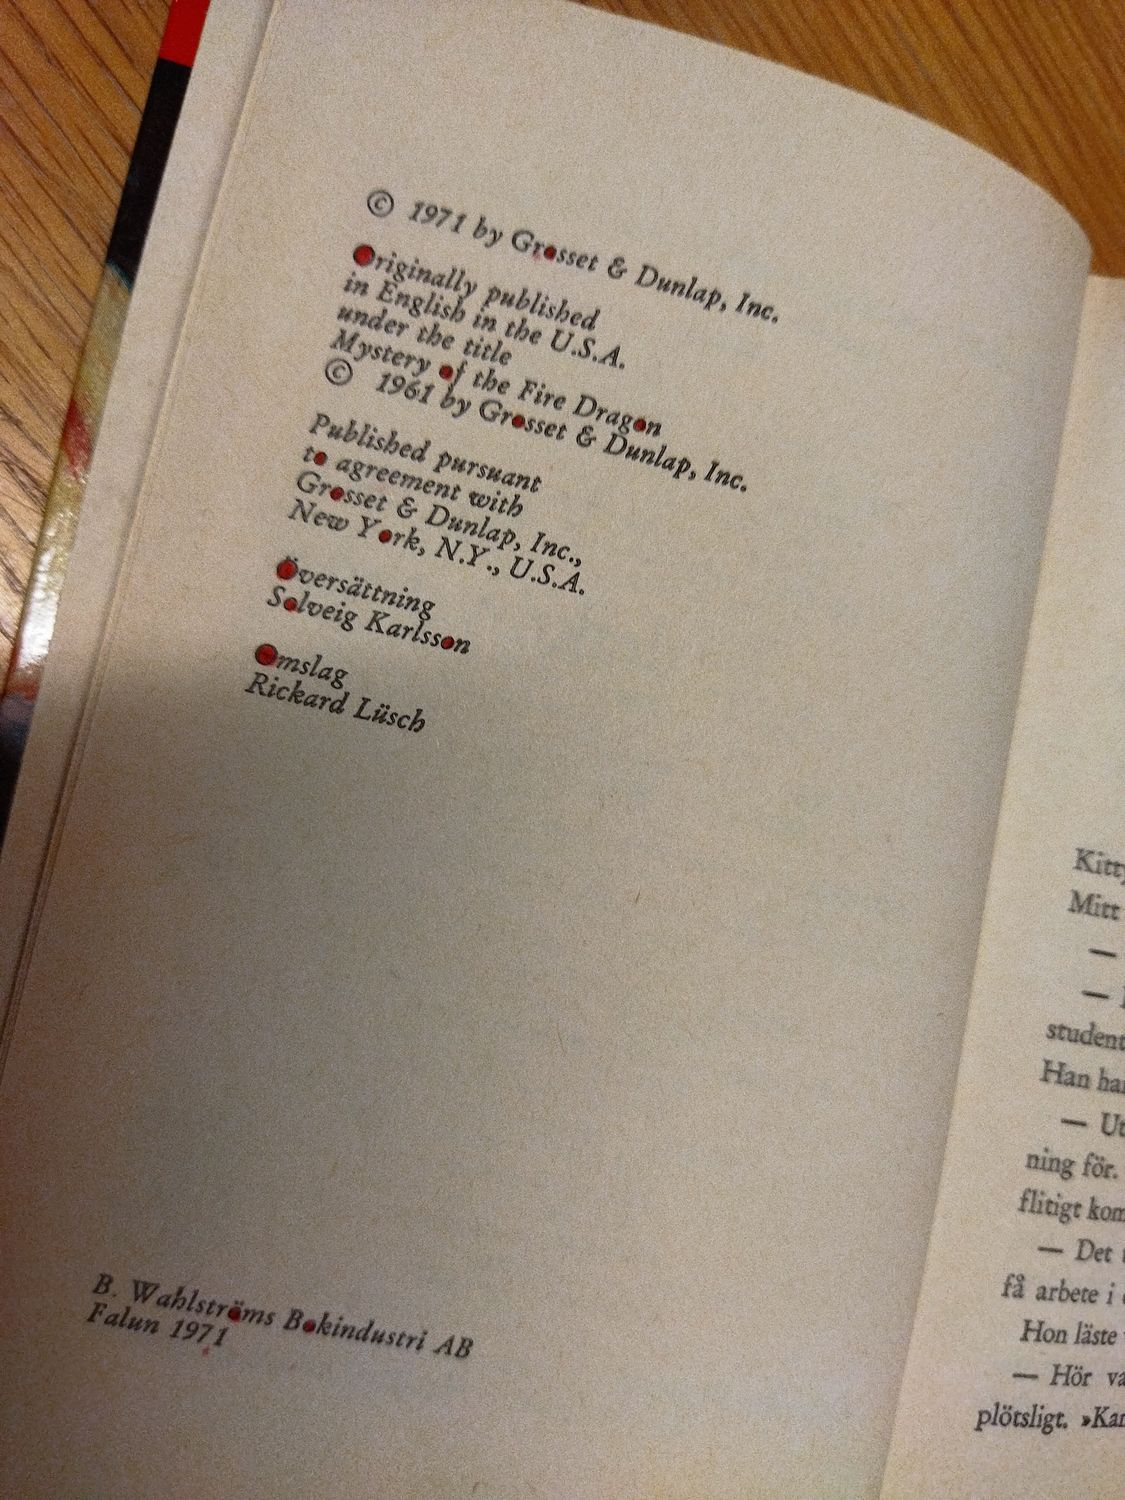 © 1971 by Grosset & Dunlap, Inc.
Originally published
in English in the U.S.A.
under the title
Mystery of the Fire Dragon
© 1961 by Grosset & Dunlap, Inc.
Published pursuant
to agreement with
Grosset & Dunlap, Inc.,
New York, N.Y., U.S.A.
Översättning
Solveig Karlsson
Omslag
Rickard Lüsch
B. Wahlströms Bokindustri AB
Falun 1971
Kitty
Mitt
—
—
student
Han har
— Ut
ning för.
flitigt kom
— Det
få arbete i
Hon läste
— Hör
plötsligt. »Kar